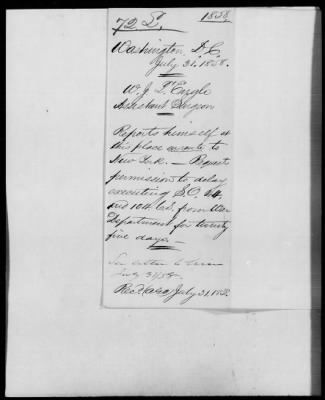 72 L, 1858,
Washington, D.C.
July 31. 1858.
W. J. L'Engle
Assistant Surgeon
Reports himself at
this place en route to
New York. — Request
permission to delay
executing S.O. 44,
and 104 C.S. from War
Department for twenty
five days. —
See letter to
July 31/58.
Recd July 31, 1858.